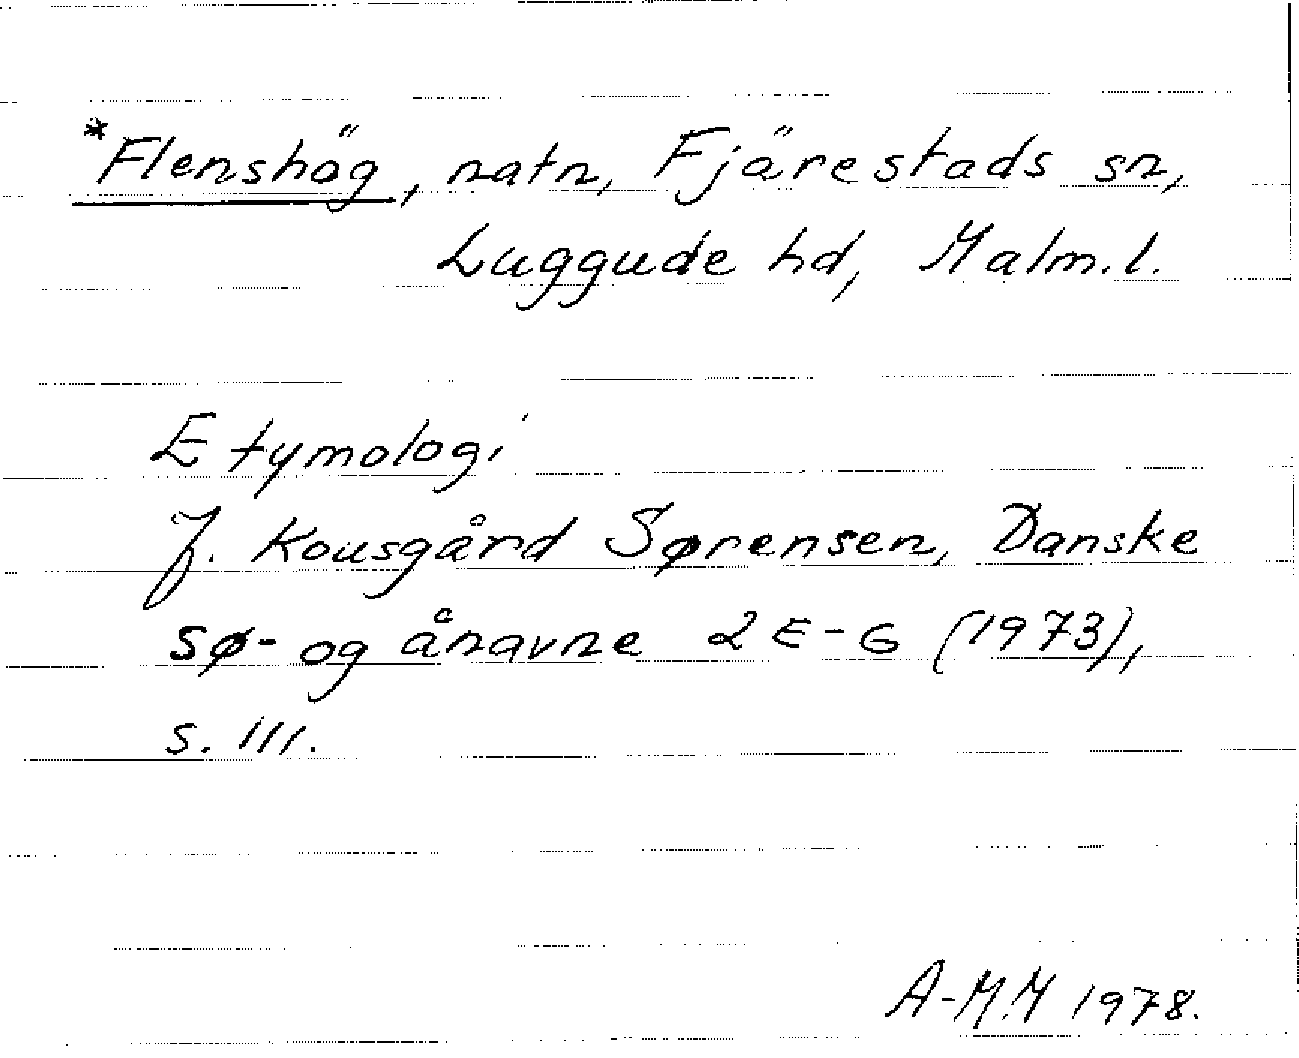 *Flenshög, natn, Fjärestads sn,
Luggude hd, Malm.l.
Etymologi
J. Kousgård Sørensen, Danske
sø- og ånavne 2 E-G (1973),
s. 111.
A-M.M 1978.